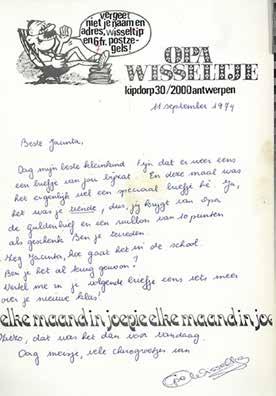 vergeet
met je naam en
adres, wisseltip
en 6 fr. postze-
gels!
OPA
WISSELTJE
kipdorp 30/2000 antwerpen
11 september 1974
Beste Jacinta,
Dag mijn beste kleinkind. Fijn dat er weer eens
een briefje van jou bijzat. En deze maal was
het eigenlijk wel een speciaal briefje hé. Ja,
het was je tiende, dus, jij krijgt van opa
de guldenbrief en een wissel van 10 punten
als geschenk. Ben je tevreden.
Zeg Jacinta, hoe gaat het in de school.
Ben je het al terug gewoon?
Vertel me in je volgende briefje eens iets meer
over je nieuwe klas!
elke maand in joepie elke maand in joe
Zieko, dat was het dan voor vandaag.
Dag meisje, vele chiegroetjes van
Opa Wisseltje